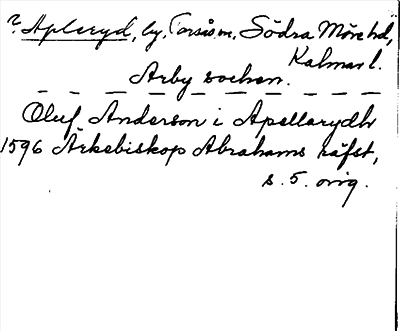 ? Apleryd, by, Torsås sn, Södra Möre hd,
Kalmar l.
Arby socken.
Oluf Anderson i Apellarydh
1596 Ärkebiskop Abrahams räfst,
s. 5. orig.